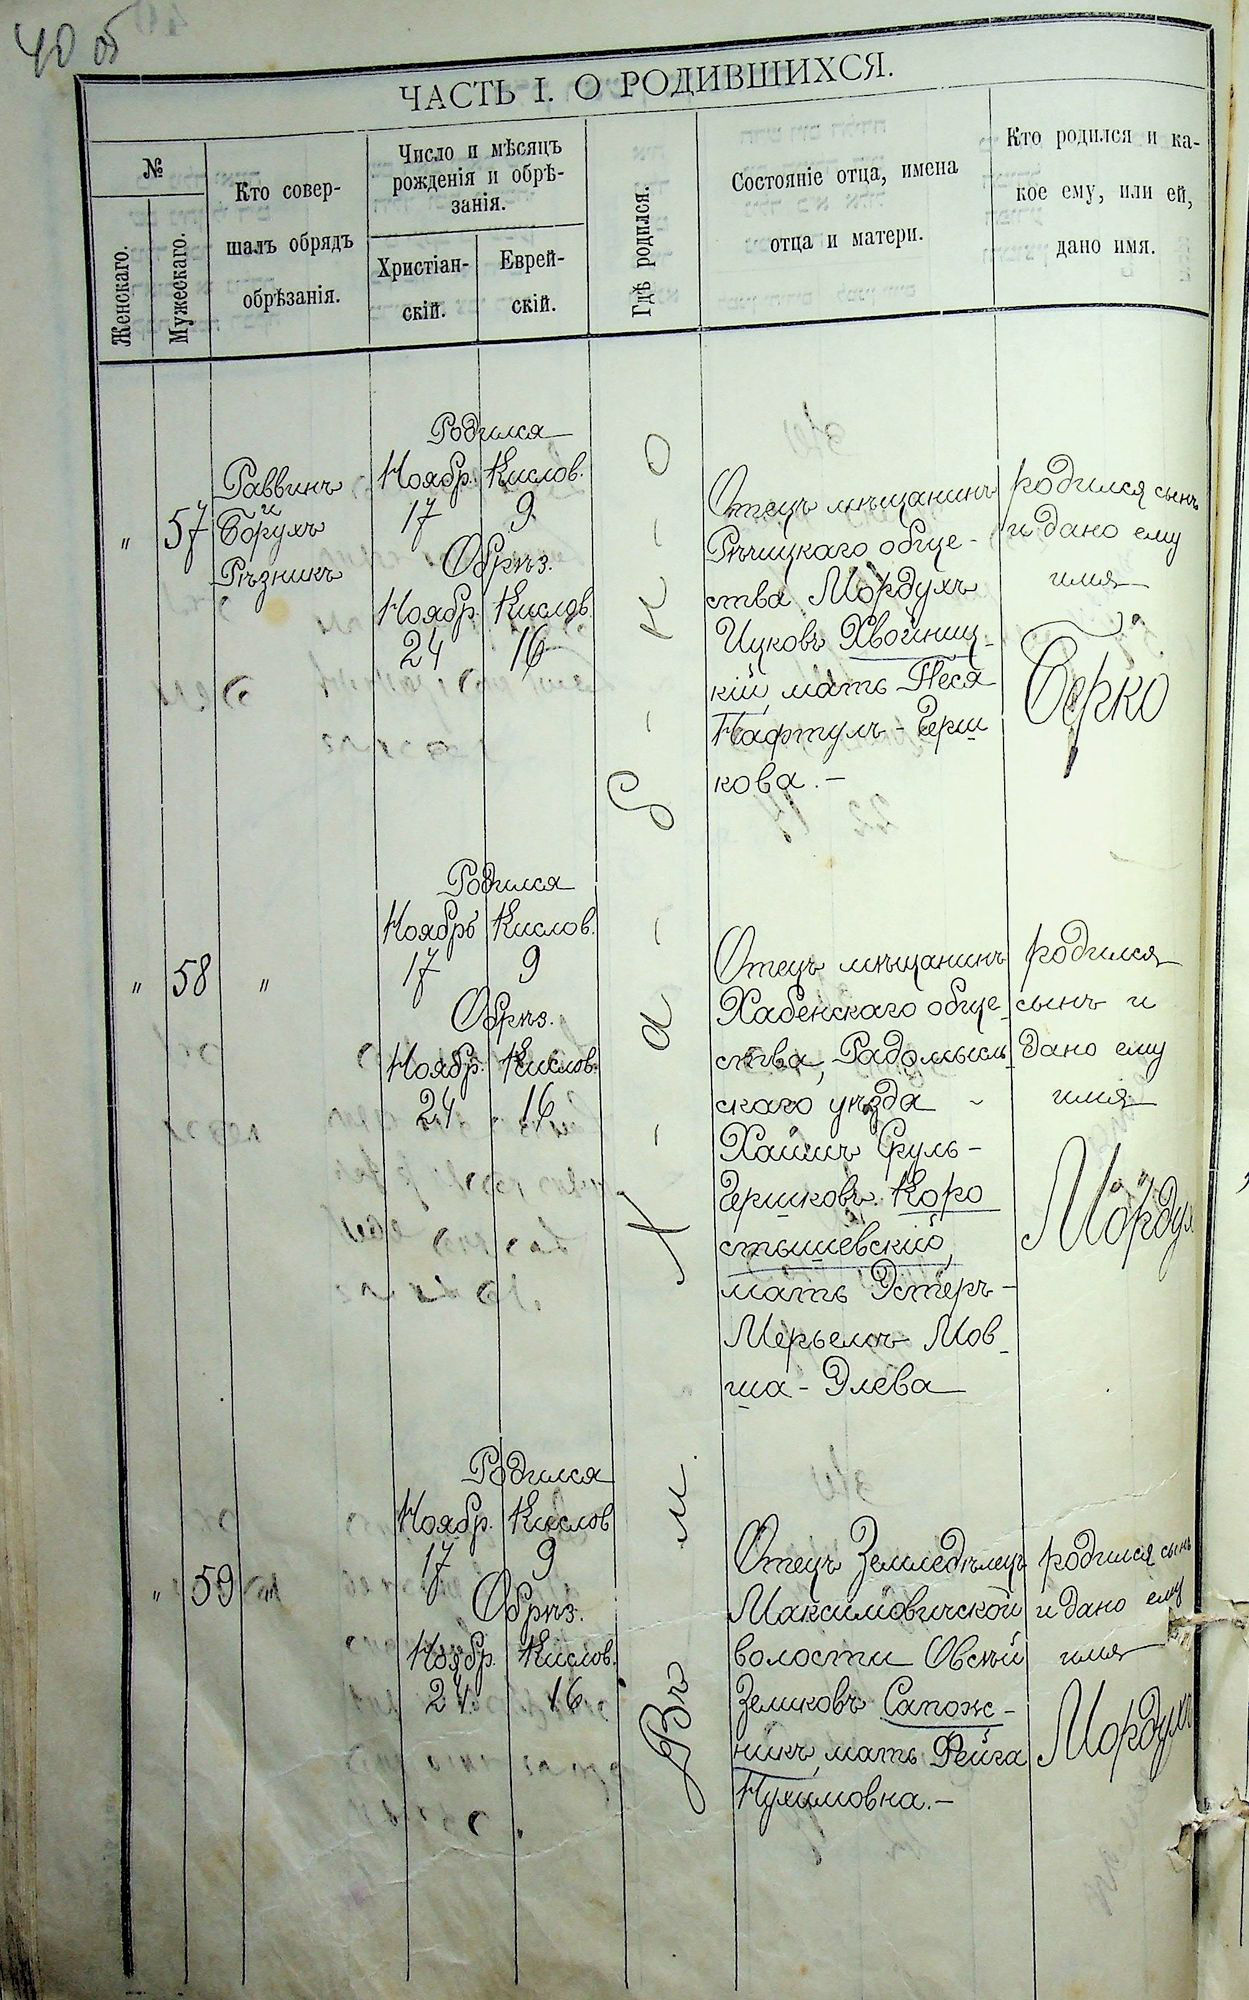 40 об
ЧАСТЬ I. О РОДИВШИХСЯ.
№
Женскаго.
Мужескаго.
Кто совер-
шалъ обрядъ
обрѣзанія.
Число и мѣсяцъ
рожденія и обрѣ-
занія.
Христіан-
скій.
Еврей-
скій.
Гдѣ родился.
Состояніе отца, имена
отца и матери.
Кто родился и ка-
кое ему, или ей,
дано имя.
Въ м. Х-а-б-к-о
" 57
Раввинъ
и
Борухъ
Рѣзникъ
Родился
Ноябр. Кислов.
17 9
Обрѣз.
Ноябр. Кислов.
24 16
Отецъ мѣщанинъ
Рѣчицкаго обще-
ства Мордухъ
Ицковъ Хвойниц-
кій, мать Песя
Нафтулъ-Герш
кова.-
родился сынъ
и дано ему
имя
Берко
" 58 "
Родился
Ноябрь Кислов.
17 9
Обрѣз.
Ноябр. Кислов.
24 16
Отецъ мѣщанинъ
Хабенскаго обще-
ства, Радомысль
скаго уѣзда -
Хаимъ Сруль-
Гершковъ Коро
стышевскій,
мать Эстеръ-
Мерьемъ Мов-
ша-Элева
родился
сынъ и
дано ему
имя
Мордух
" 59 "
Родился
Ноябр. Кислов
17 9
Обрѣз.
Ноябр. Кислов.
24 16
Отецъ Земледѣлецъ
Максимовичской
волости Овсѣй
Зеликовъ Сапож-
никъ, мать Фейга
Нухимовна.-
родился сынъ
и дано ему
имя
Мордухъ